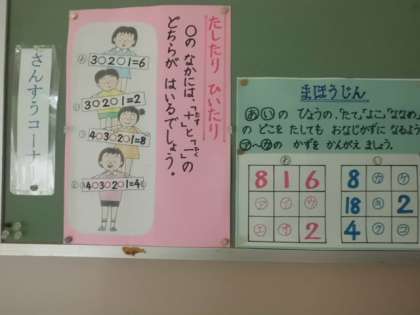 さんすうコーナー
たしたり ひいたり
○の なかには、「+」と「-」の
どちらが はいるでしょう。
3○2○1=6
3○2○1=2
4○3○2○1=8
4○3○2○1=4
まほうじん
あ い の ひょうの、「たて」「よこ」「ななめ」
の どこを たしても おなじかずに なるよ
ア〜カの かずを かんがえ ましょう。
8 1 6
ア イ ウ
エ オ 2
8 カ ケ
18 2
4